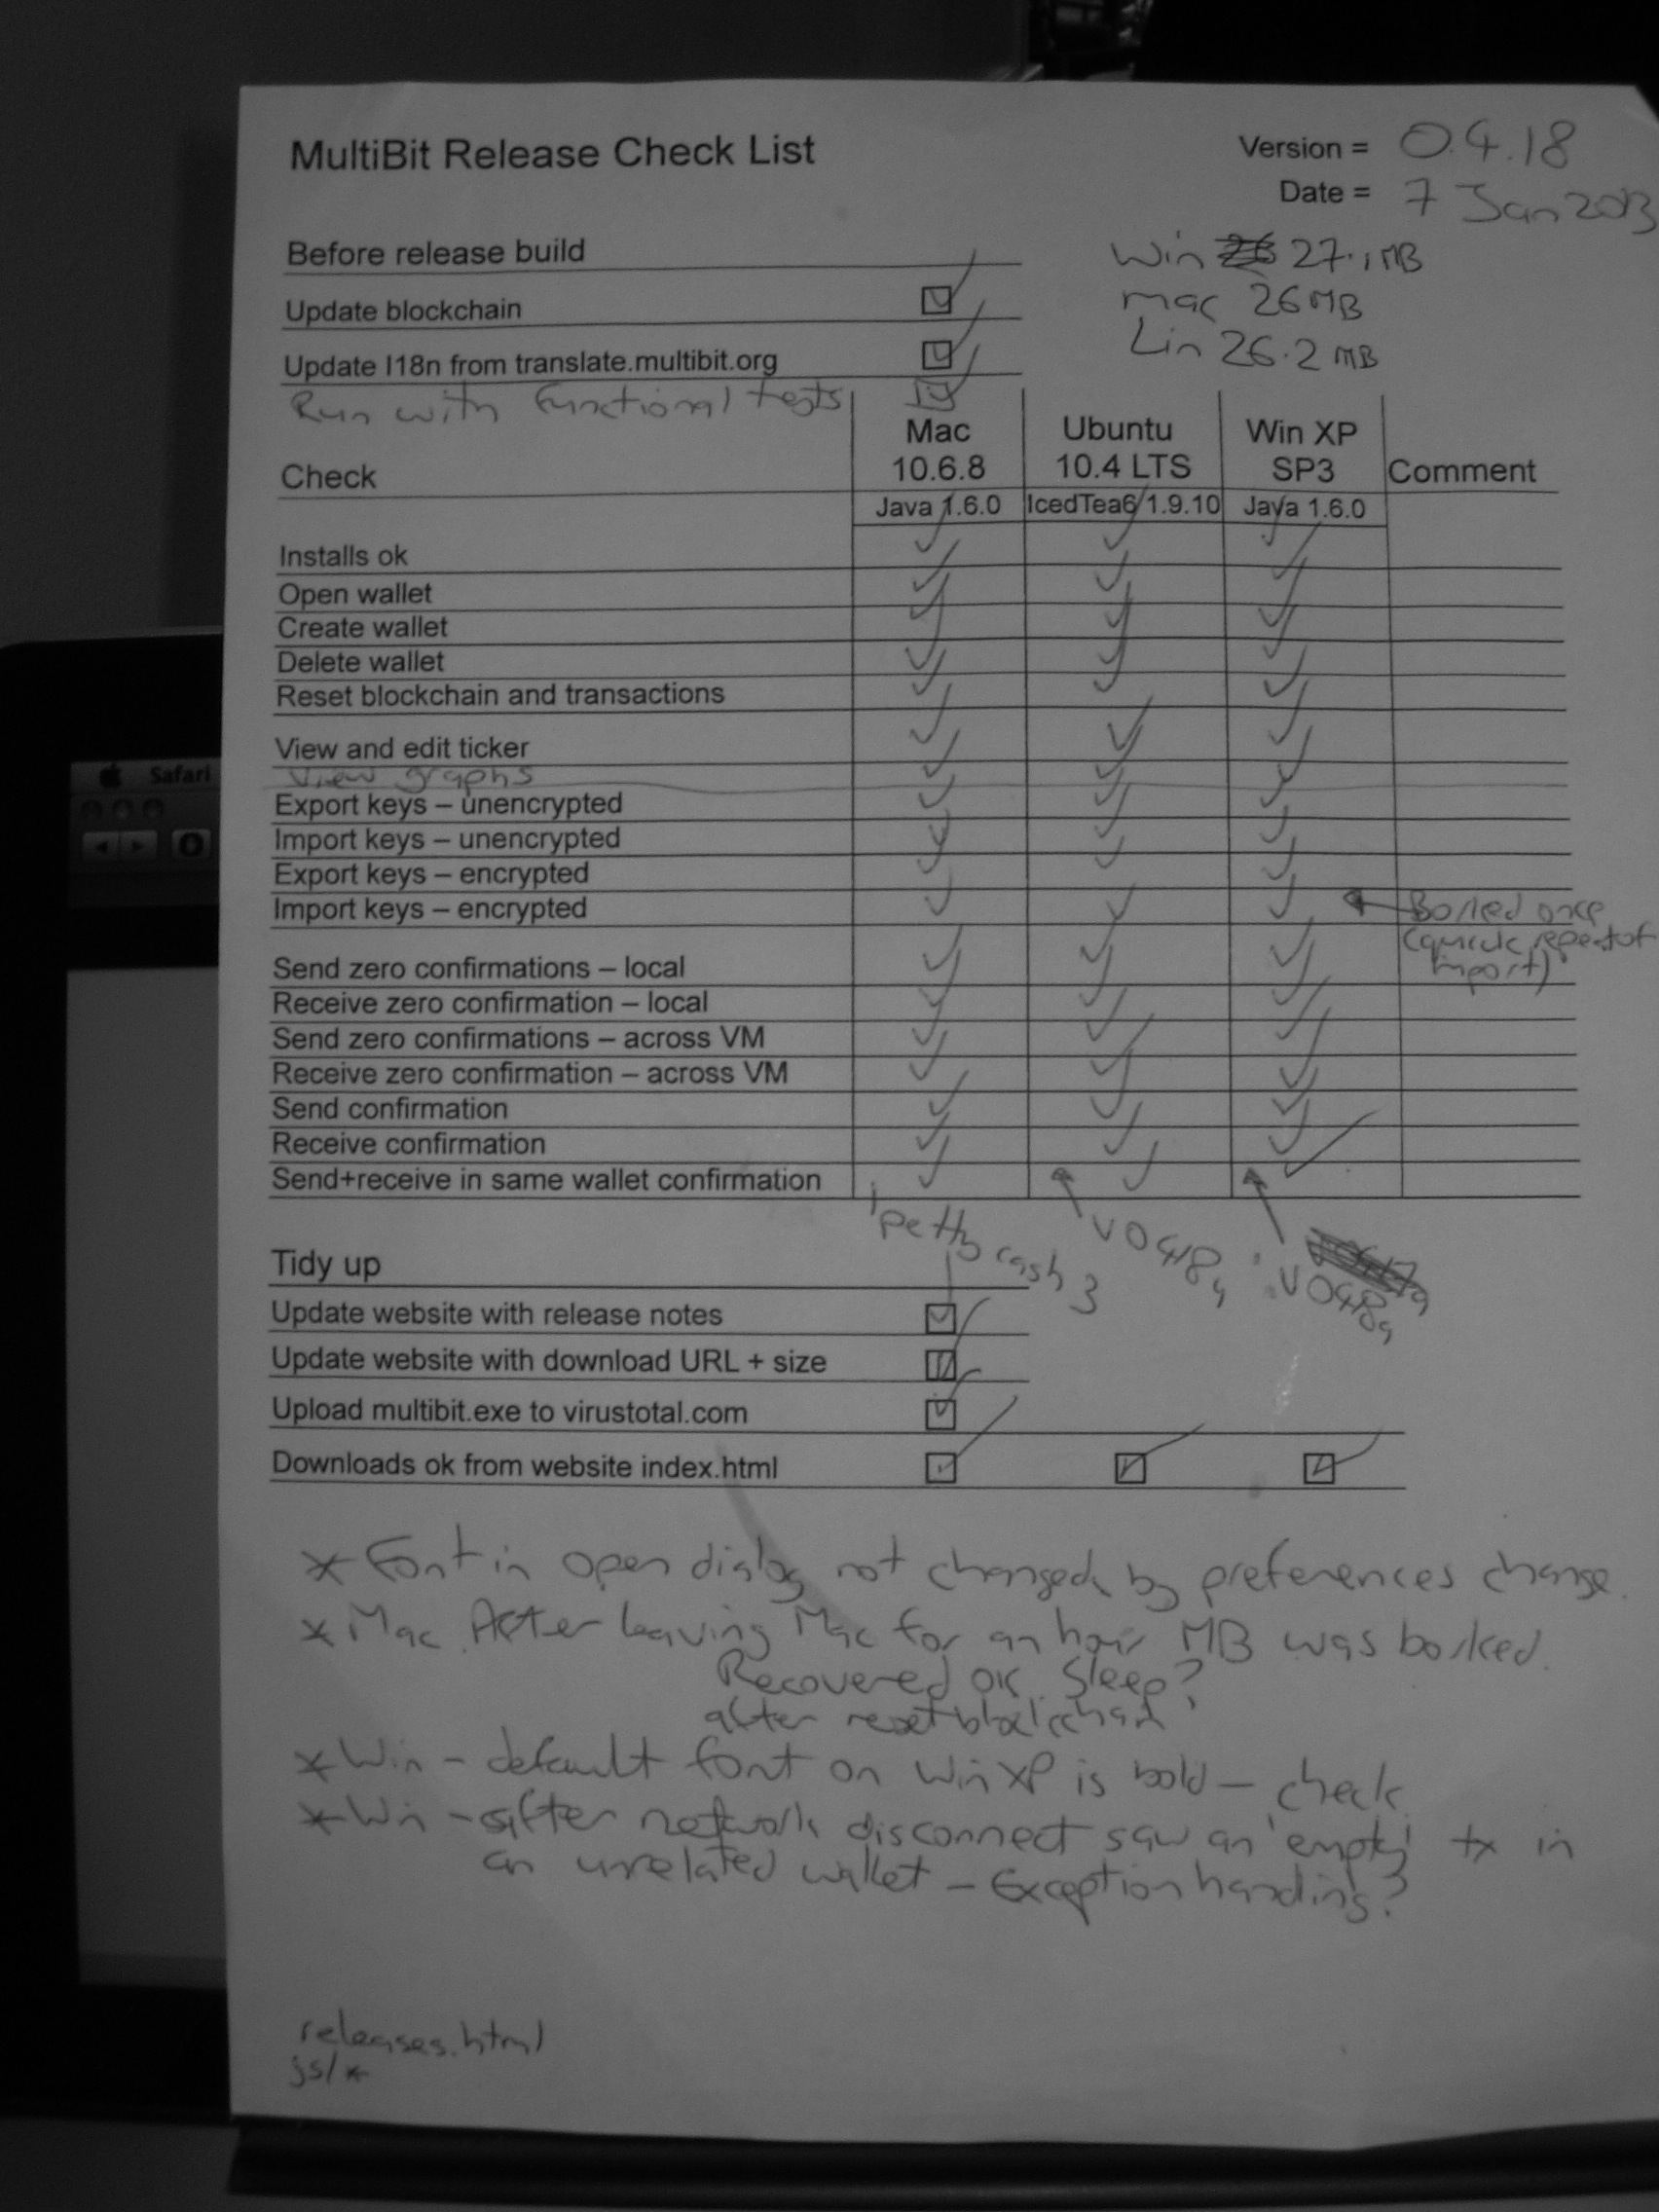 MultiBit Release Check List
Version = 0.4.18
Date = 7 Jan 2013
Before release build
Win 27.1 MB
Update blockchain
mac 26 MB
Update I18n from translate.multibit.org
Lin 26.2 MB
Run with functional tests
Check
Mac 10.6.8
Ubuntu 10.4 LTS
Win XP SP3
Comment
Java 1.6.0
IcedTea6 1.9.10
Java 1.6.0
Installs ok
Open wallet
Create wallet
Delete wallet
Reset blockchain and transactions
View and edit ticker
View graphs
Export keys – unencrypted
Import keys – unencrypted
Export keys – encrypted
Import keys – encrypted
Borked once
(quick repeat of
import)
Send zero confirmations – local
Receive zero confirmation – local
Send zero confirmations – across VM
Receive zero confirmation – across VM
Send confirmation
Receive confirmation
Send+receive in same wallet confirmation
petty cash 3
Tidy up
Update website with release notes
Update website with download URL + size
Upload multibit.exe to virustotal.com
Downloads ok from website index.html
* Font in open dialog not changed by preferences change.
* Mac. After leaving Mac for an hour MB was borked.
Recovered OK. Sleep?
after reset blockchain
* Win – default font on Win XP is bold – check
* Win – after network disconnect saw an 'empty' tx in
an unrelated wallet – Exception handling?
releases.html
js/*
Safari